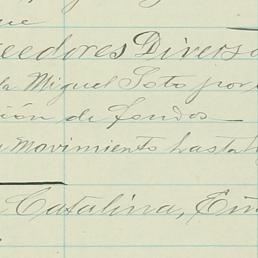 que
eedores Diverso
la Miguel Soto por
ión de fondos
Movimiento hasta
Catalina, Ein